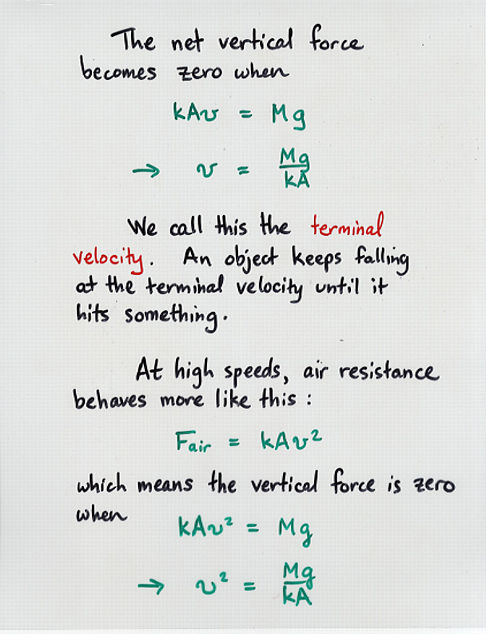 The net vertical force
becomes zero when
kAv = Mg
→ v = Mg/kA
We call this the terminal
velocity. An object keeps falling
at the terminal velocity until it
hits something.
At high speeds, air resistance
behaves more like this :
Fair = kAv²
which means the vertical force is zero
when
kAv² = Mg
→ v² = Mg/kA